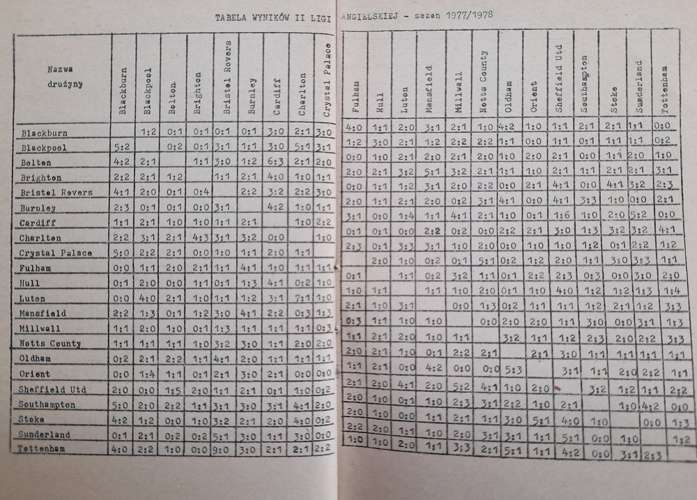 TABELA WYNIKÓW II LIGI ANGIELSKIEJ - sezon 1977/1978
Nazwa drużyny Blackburn Blackpool Bolton Brighton Bristol Rovers Burnley Cardiff Charlton Crystal Palace Fulham Hull Luton Mansfield Millwall Notts County Oldham Orient Sheffield Utd Southampton Stoke Sunderland Tottenham
Blackburn 1:2 0:1 0:1 0:1 0:1 3:0 2:1 3:0 4:0 1:1 2:0 3:1 2:1 1:0 4:2 1:0 1:1 2:1 2:1 1:1 0:0
Blackpool 5:2 0:2 0:1 3:1 1:1 3:0 5:1 3:1 1:2 3:0 2:1 1:2 2:2 2:2 1:1 0:0 1:1 0:1 1:1 1:1 0:2
Bolton 4:2 2:1 1:1 3:0 1:2 6:3 2:1 2:0 0:0 1:0 2:1 2:0 2:1 2:0 1:0 2:0 2:1 0:0 1:1 2:0 1:0
Brighton 2:2 2:1 1:2 1:1 2:1 4:0 1:0 1:1 2:0 2:1 3:2 5:1 3:2 2:1 1:1 1:0 2:1 1:1 2:1 2:1 3:1
Bristol Rovers 4:1 2:0 0:1 0:4 2:2 3:2 2:2 3:0 0:0 1:1 1:2 3:1 2:0 2:2 0:0 2:1 4:1 0:0 4:1 3:2 2:3
Burnley 2:3 0:1 0:1 0:0 3:1 4:2 1:0 1:1 2:0 1:1 2:1 2:0 0:2 3:1 4:1 0:0 4:1 3:3 1:0 0:0 2:1
Cardiff 1:1 2:1 1:0 1:0 1:1 2:1 1:0 2:2 3:1 0:0 1:4 1:1 4:1 2:1 1:0 0:1 1:6 1:0 2:0 5:2 0:0
Charlton 2:2 3:1 2:1 4:3 3:1 3:2 0:0 1:0 0:1 0:1 0:0 2:2 0:2 0:0 2:2 2:1 3:0 1:3 3:2 3:2 4:1
Crystal Palace 5:0 2:2 2:1 0:0 1:0 1:1 2:0 1:1 2:3 0:1 3:3 3:1 1:0 2:0 0:0 1:0 1:0 1:2 0:1 2:2 1:2
Fulham 0:0 1:1 2:0 2:1 1:1 4:1 1:0 1:1 1:1 2:0 1:0 0:2 0:1 5:1 0:2 1:2 2:0 1:1 3:0 3:3 1:1
Hull 0:1 2:0 0:0 1:1 0:1 1:3 4:1 0:2 1:0 0:1 1:1 0:2 3:2 1:1 0:1 2:2 2:3 0:3 0:0 3:0 2:0
Luton 0:0 4:0 2:1 1:0 1:1 1:2 3:1 7:1 1:0 1:0 1:1 1:1 1:0 2:0 0:1 1:0 4:0 1:2 1:2 1:3 1:4
Mansfield 2:2 1:3 0:1 1:2 3:0 4:1 2:2 0:3 1:3 2:1 1:0 3:1 0:0 1:3 0:2 1:1 1:1 1:2 2:1 1:2 3:3
Millwall 1:1 2:0 1:0 0:1 1:3 1:1 1:1 1:1 0:3 0:3 1:1 1:0 1:0 0:0 2:0 2:0 1:1 3:0 0:0 3:1 1:3
Notts County 1:1 1:1 1:1 1:0 3:2 3:0 1:1 2:0 2:0 1:1 2:1 2:0 1:0 1:1 3:2 1:1 1:2 2:3 2:0 2:2 3:3
Oldham 0:2 2:1 2:2 1:1 4:1 2:0 1:1 1:1 1:1 2:0 2:1 1:0 0:1 2:2 2:1 2:1 3:0 1:1 1:1 1:1 1:1
Orient 0:0 1:4 1:1 0:1 2:1 3:0 2:1 0:0 0:0 1:1 2:1 0:0 4:2 0:0 0:0 5:3 3:1 1:1 2:0 2:2 1:1
Sheffield Utd 2:0 0:0 1:5 2:0 1:1 2:1 0:1 1:0 0:2 2:1 2:0 4:1 2:0 5:2 4:1 1:0 2:0 3:2 1:2 1:1 2:2
Southampton 5:0 2:0 2:2 1:1 3:1 3:0 3:1 4:1 2:0 2:0 1:0 0:1 1:0 2:3 3:1 2:2 1:0 2:1 1:0 4:2 0:0
Stoke 4:2 1:2 0:0 1:0 3:2 2:1 2:0 4:0 0:2 2:0 1:0 0:0 1:1 2:1 1:1 3:0 5:1 4:0 1:0 0:0 1:3
Sunderland 0:1 2:1 0:2 0:2 5:1 3:0 1:1 3:0 0:0 2:2 2:0 1:1 1:0 2:0 3:1 3:1 1:1 5:1 0:0 1:0 1:2
Tottenham 4:0 2:2 1:0 0:0 9:0 3:0 2:1 2:1 2:2 1:0 1:0 2:0 1:1 3:3 2:1 5:1 1:1 4:2 0:0 3:1 2:3